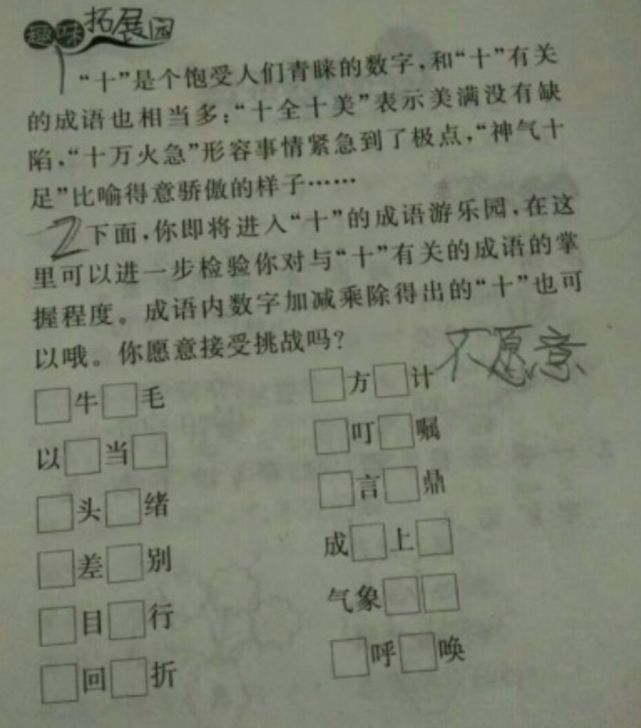 趣味拓展园
“十”是个饱受人们青睐的数字,和“十”有关
的成语也相当多:“十全十美”表示美满没有缺
陷,“十万火急”形容事情紧急到了极点,“神气十
足”比喻得意骄傲的样子……
2 下面,你即将进入“十”的成语游乐园,在这
里可以进一步检验你对与“十”有关的成语的掌
握程度。成语内数字加减乘除得出的“十”也可
以哦。你愿意接受挑战吗?
不愿意
□牛□毛 □方□计
以□当□ □叮□嘱
□头□绪 □言□鼎
□差□别 成□上□
□目□行 气象□□
□回□折 □呼□唤